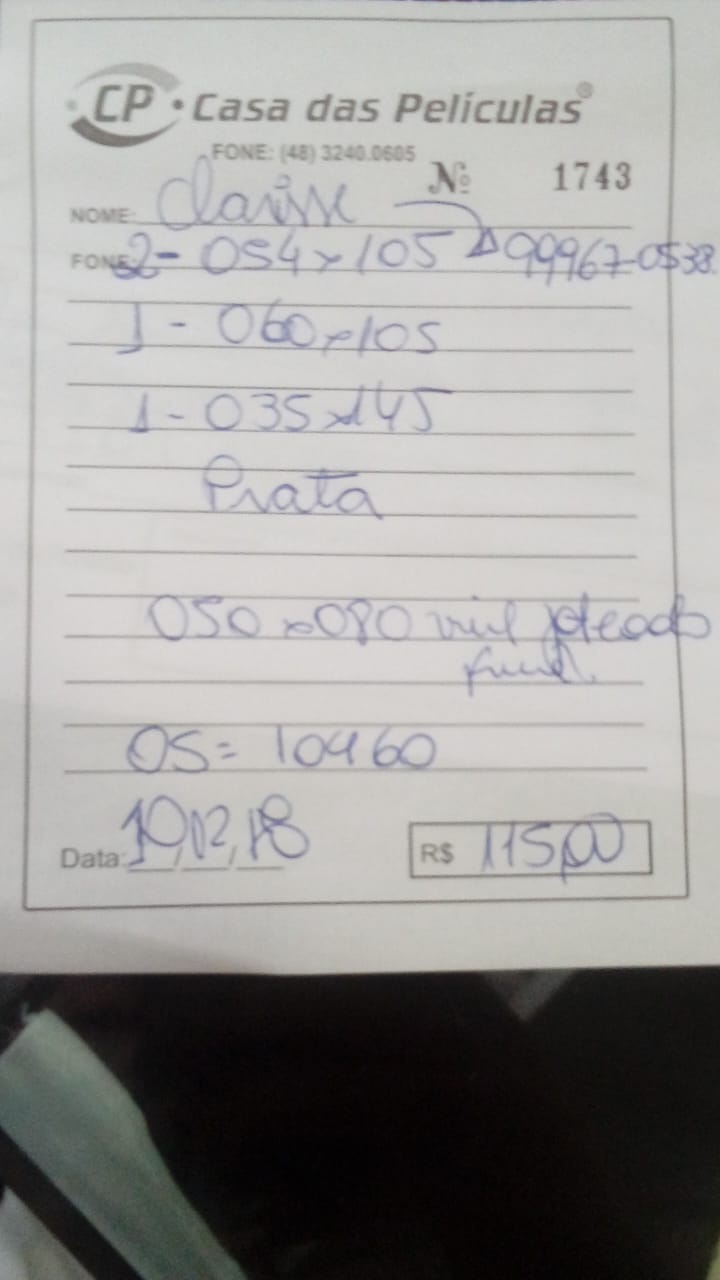 CP • Casa das Películas®
FONE: (48) 3240.0605
Nº 1743
NOME: Clarisse
FONE: 2- 054x105 99967-0538
1- 060x105
1- 035x145
Prata
050x080 jateado
OS= 10460
Data: 10/12/18 R$ 115,00